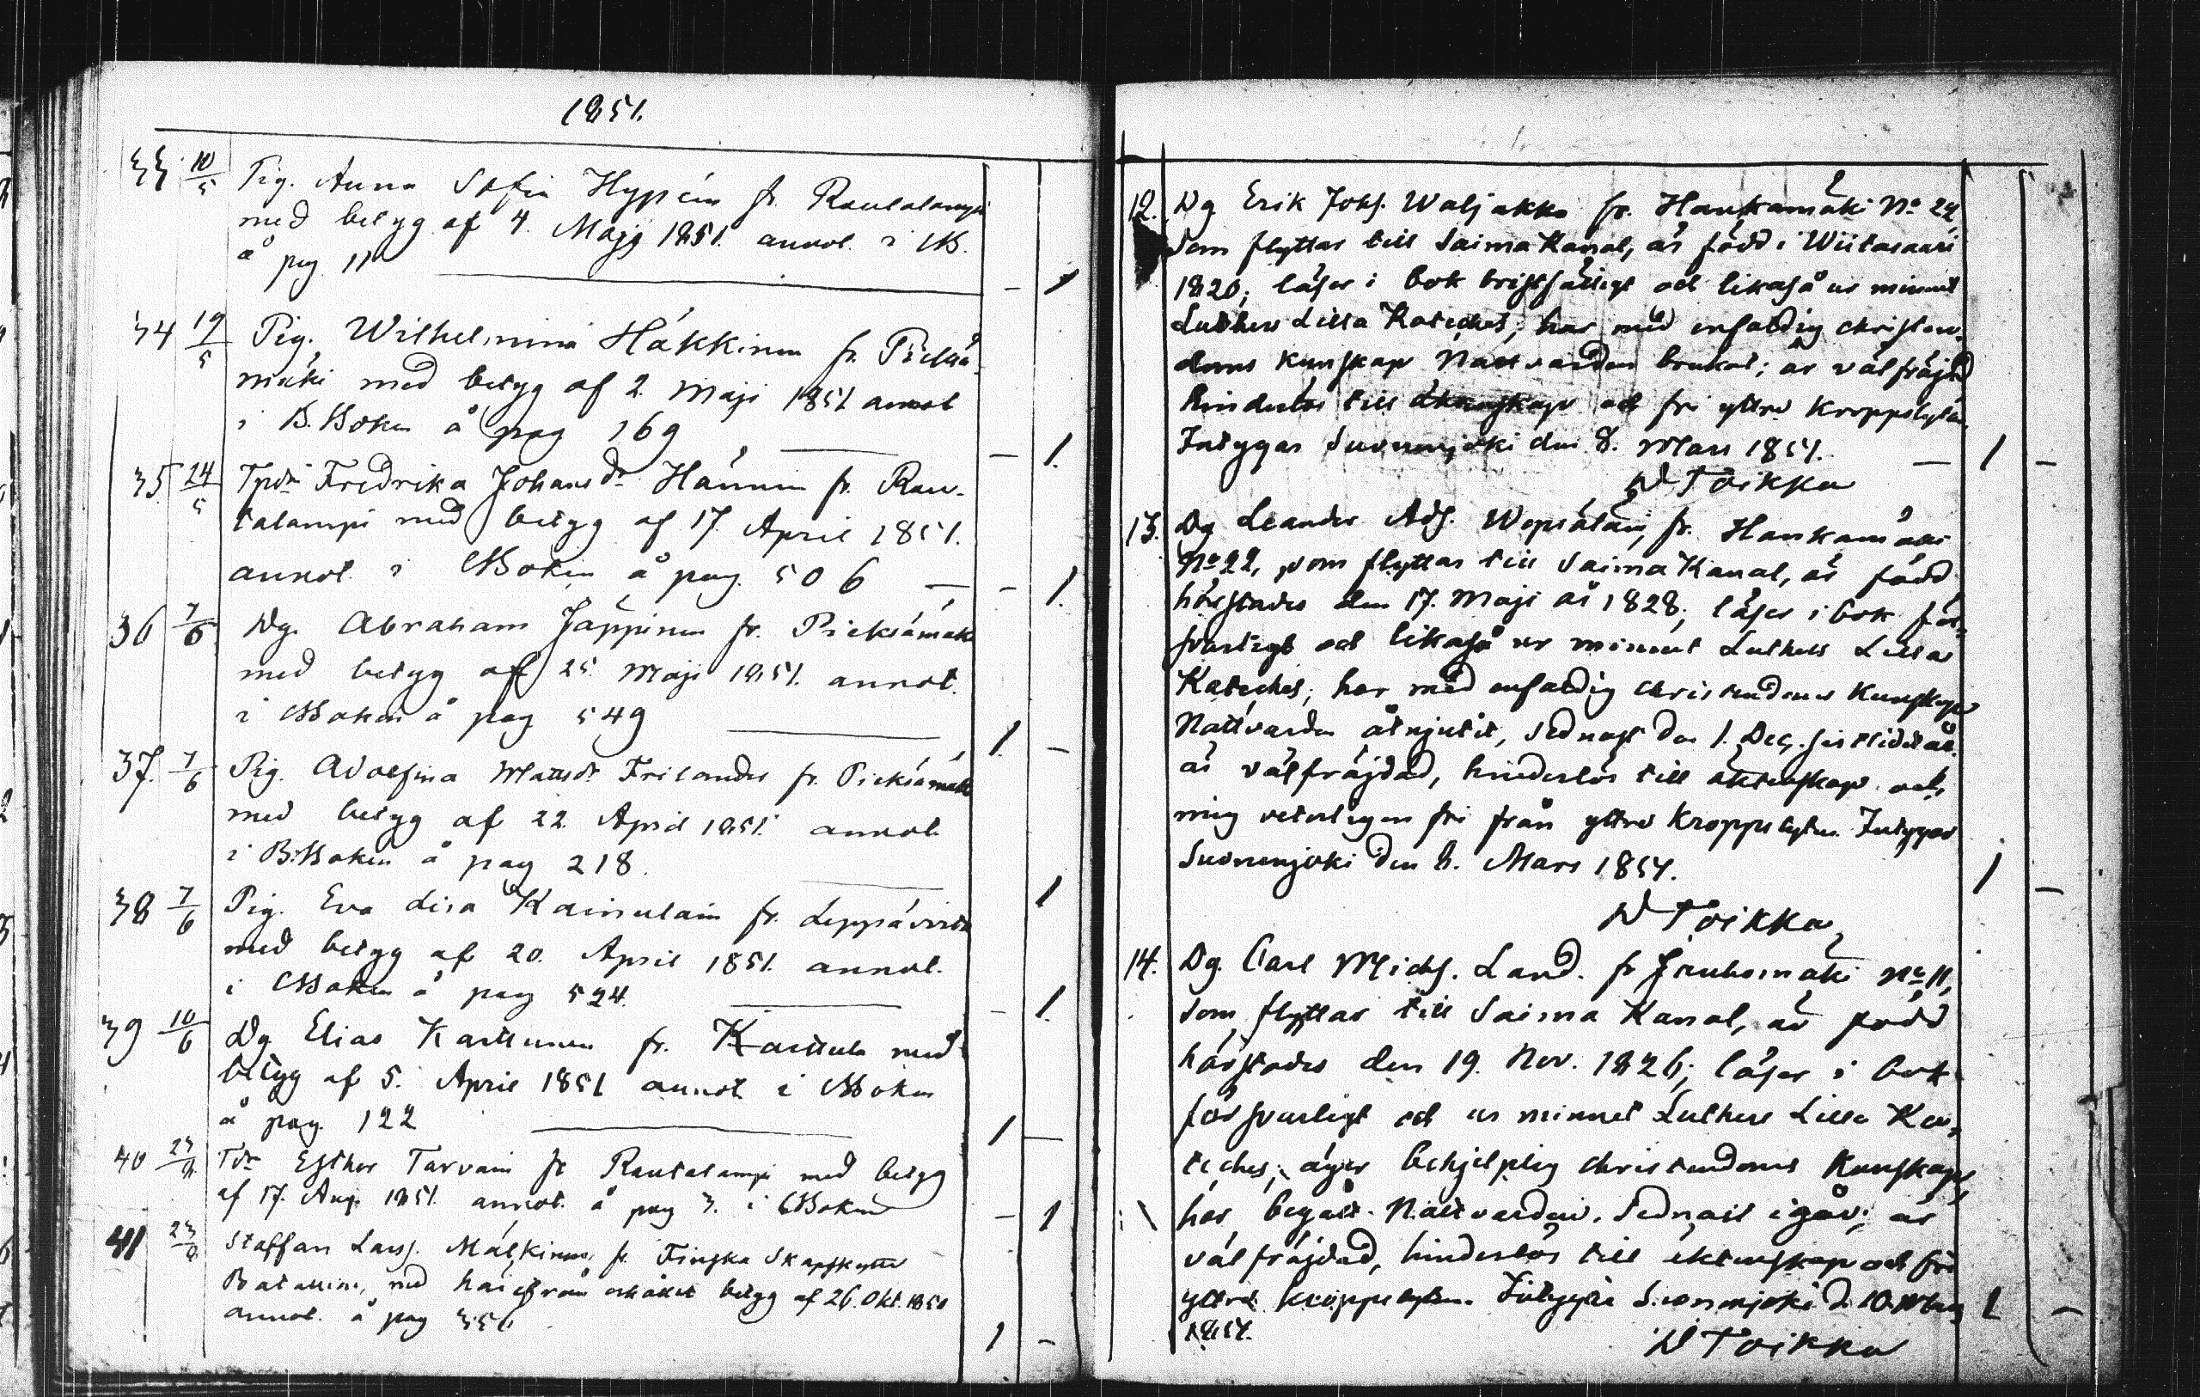 1851.
33 10/5 Pig. Anna Sofia Hyppéin fr. Rautalampi
med betyg af 4. Maji 1851. annot. i KB.
å pag. 11 — 1
34 19/5 Pig. Wilhelmina Häkkinen fr. Pieksä-
mäki med betyg af 2. Maji 1851 annot
i B.Boken å pag 169 — 1.
35 24/5 Fredrika Johansdr Hännin fr. Rau-
talampi med betyg af 17. April 1851.
annot. i KBoken å pag. 506 — 1.
36 7/6 Dg. Abraham Jäppinen fr. Pieksämäki
med betyg af 25. Maji 1851. annot.
i KBoken å pag 549 1 —
37. 7/6 Pig. Adolfina Mattsdr Frilander fr. Pieksämäki
med betyg af 22. April 1851. annot.
i B:Boken å pag 218. 1
38 7/6 Pig. Eva Lisa Kainulain fr. Leppävirta
med betyg af 20. April 1851. annot.
i KBoken å pag 524. — 1.
39 10/6 Dg Elias Karttunen fr. Karttula med
betyg af 5. April 1851 annot i KBoken
å pag. 122 1 —
40 Esther Tarvain fr Rautalampi med betyg
af 17. Aug. 1851. annot. å pag 3. i KBoken — 1
41 Staffan Larss. Mälkinen, fr. Finska Skarpskytte
Bataillon, med härifrån erhållet betyg af 26. Okt. 1850
annot. å pag 356 1 —
12. Dg Erik Johs. Waljakka fr. Haukamäki No 24,
som flyttar till Saima Kanal, är född i Wiitasaari
1820; läser i bok bristfälligt och likaså ur minnet
Luthers Lilla Kateches; har med enfaldig christen-
doms kunskap Nattvarden brukat; är välfräjd
hinderlös till äktenskap och fri yttre kroppslyten.
Intygar Suonenjoki den 8. Mars 1851. — 1 —
Toikka
13. Dg Leander Ads. Wepsäläin, fr. Haukamäki
No 22, som flyttar till Saima Kanal, är född
härstädes den 17. Maji år 1828; läser i bok för-
svarligt och likaså ur minnet Luthers Lilla
Kateches; har med enfaldig christendoms kunskap
Nattvarden åtnjutit, sednast den 1. Dec. sistlidet år.
är välfräjdad, hinderlös till äktenskap och
mig veterligen fri från yttre kroppslyten. Intygar
Suonenjoki den 8. Mars 1851. 1 —
Toikka
14. Dg. Carl Michs. Land. fr Jauhomäki No 11,
som flyttar till Saima Kanal, är född
härstädes den 19. Nov. 1826; läser i bok
försvarligt och ur minnet Luthers Lilla Ka-
teches; äger behjelplig christendoms kunskap,
har begått Nattvarden. Sednast igår; är
välfräjdad, hinderlös till äktenskap och fri
yttre kroppslyten. Intygar Suonenjoki d. 10. Mars 1 —
1851.
Toikka